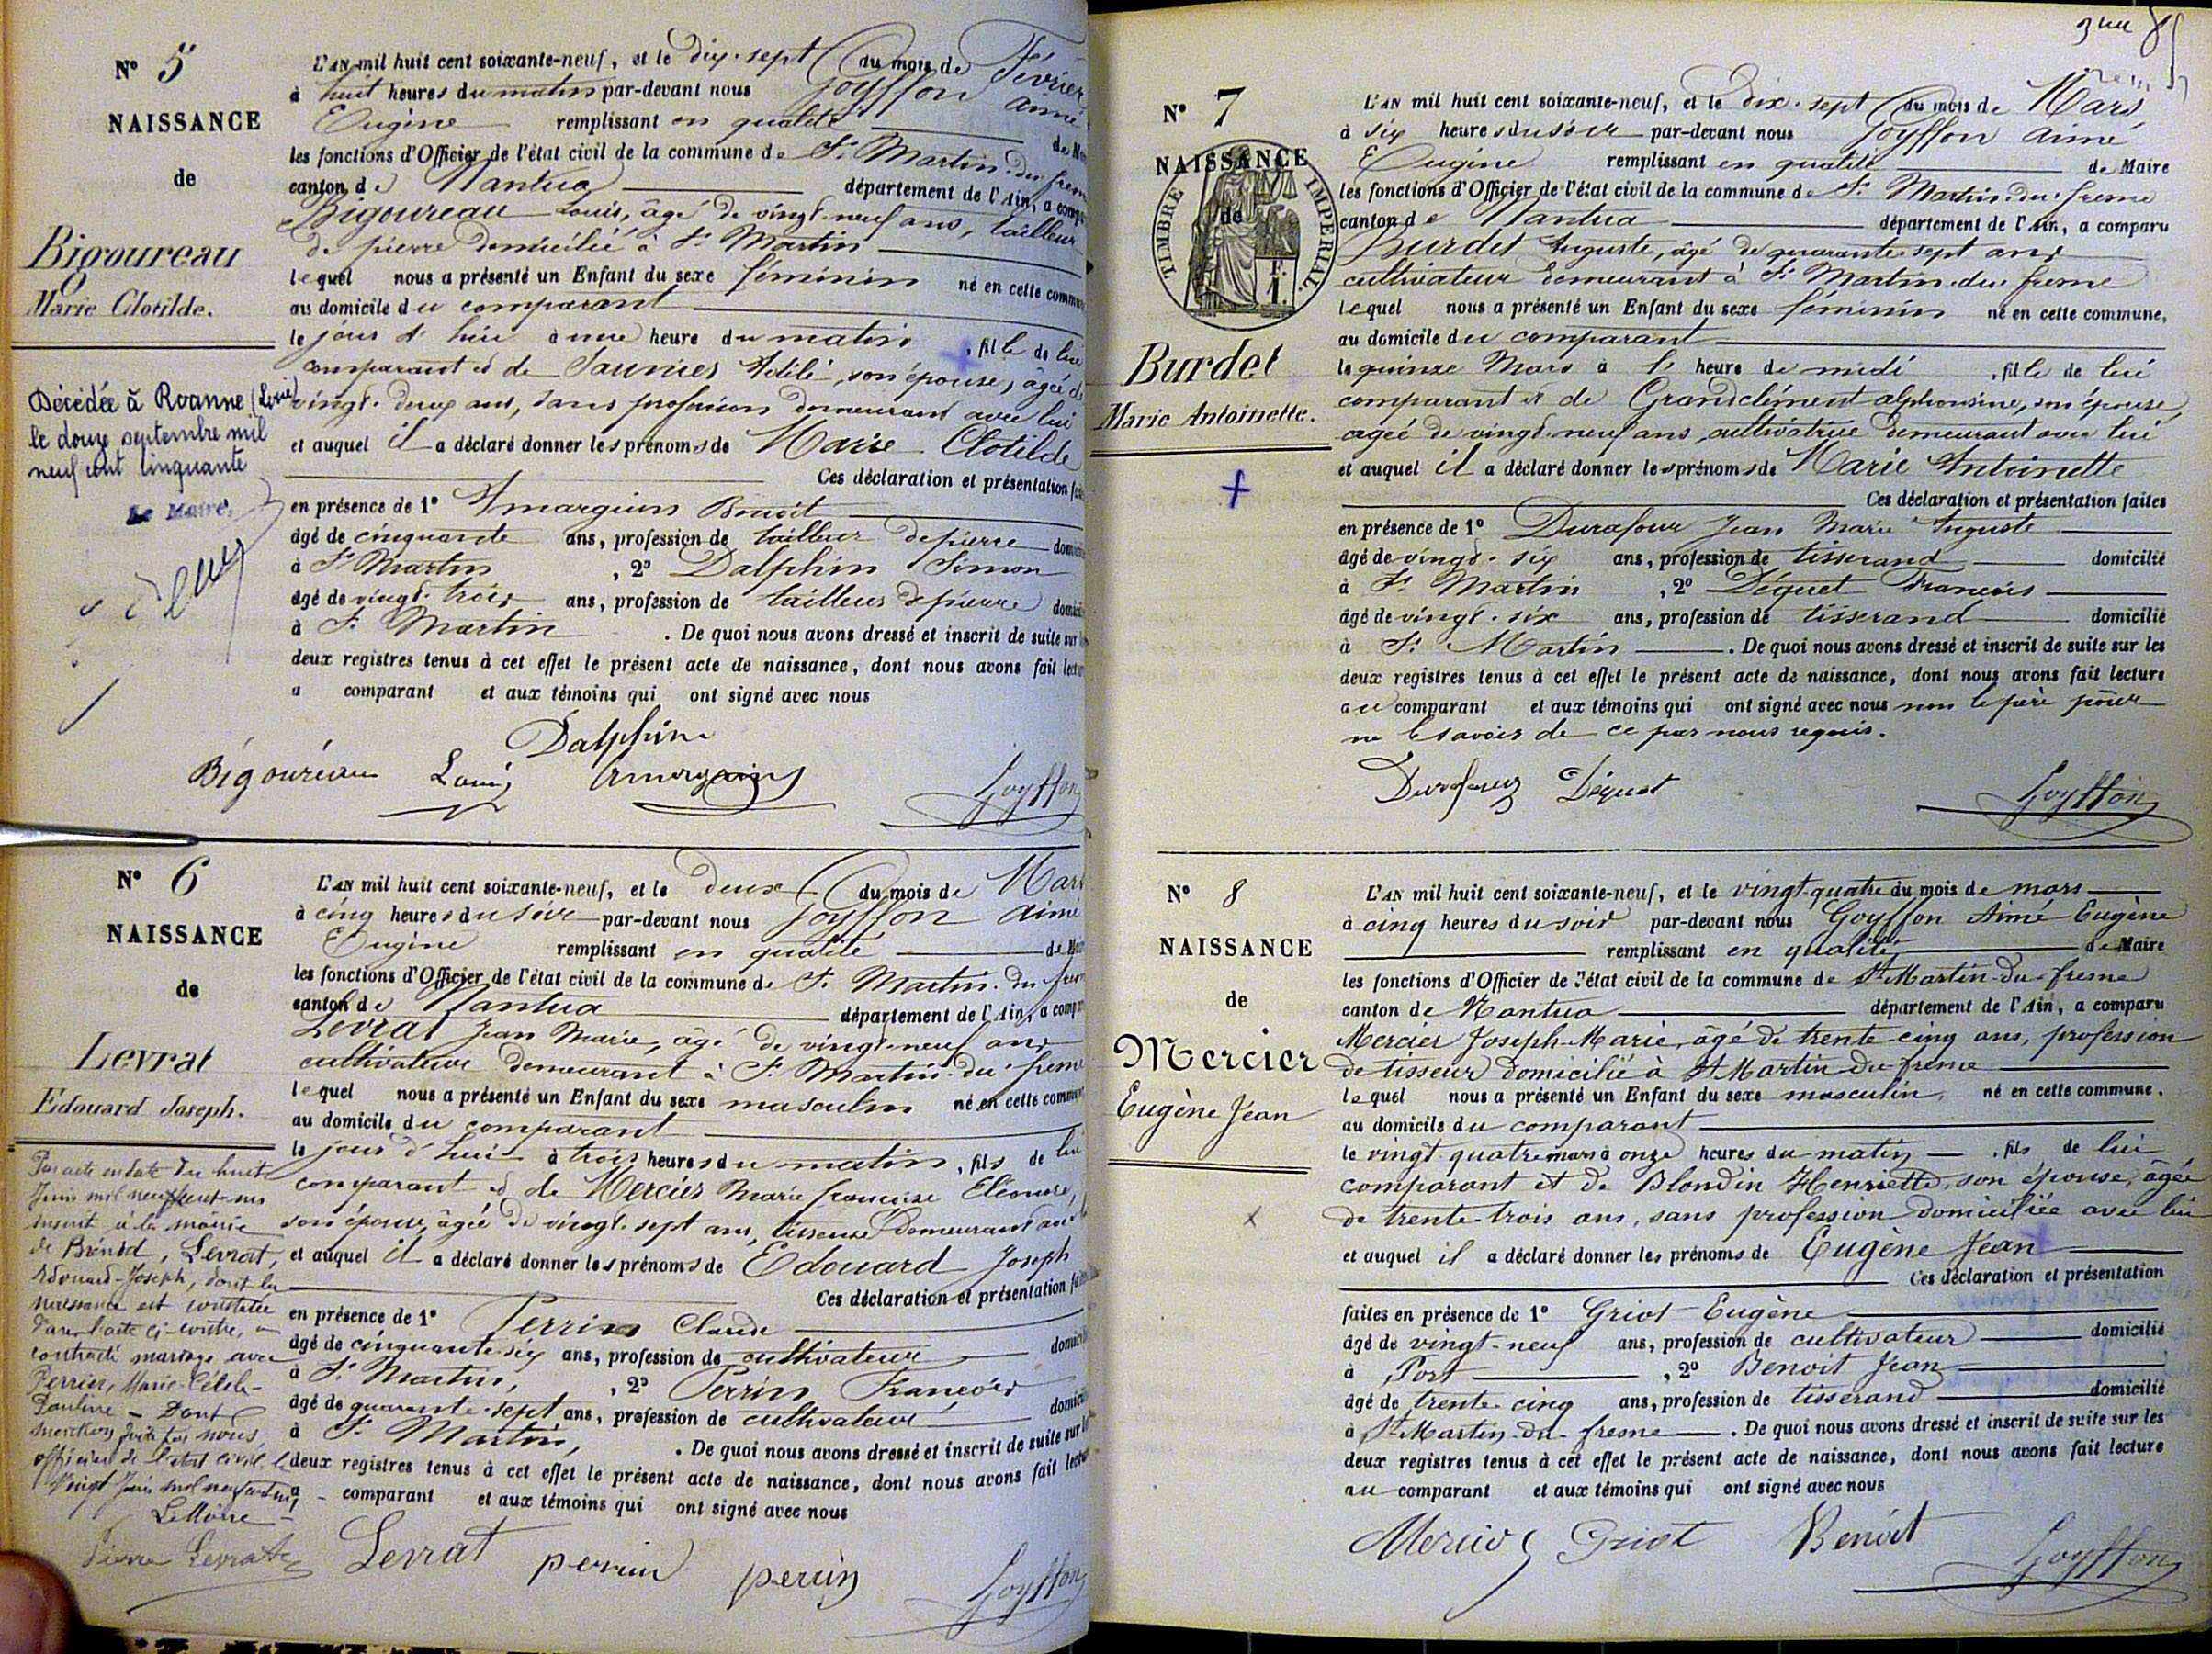 N° 5
NAISSANCE
de
Bigoureau
Marie Clotilde.
Décédée à Roanne (Loire)
le douze septembre mil
neuf cent cinquante
Le Maire,
L'AN mil huit cent soixante-neuf, et le dix-sept du mois de Février
à huit heures du matin par-devant nous Goyffon Aimé
Eugène remplissant en qualité de M
les fonctions d'Officier de l'état civil de la commune de St Martin-du-fresne
canton de Nantua département de l'Ain, a comp
Bigoureau Louis, âgé de vingt-neuf ans, tailleur
de pierre domicilié à St Martin
lequel nous a présenté un Enfant du sexe féminin né en cette commun
au domicile du comparant
le jour d'hui à une heure du matin, fille de lui
comparant et de Saunier Adèle, son épouse, âgée de
vingt-deux ans, sans profession demeurant avec lui
et auquel il a déclaré donner les prénoms de Marie Clotilde
Ces déclaration et présentation fai
en présence de 1° Amarguin Benoît
âgé de cinquante ans, profession de tailleur de pierre domici
à St Martin, 2° Dalphin Simon
âgé de vingt-trois ans, profession de tailleur de pierre domici
à St Martin. De quoi nous avons dressé et inscrit de suite sur l
deux registres tenus à cet effet le présent acte de naissance, dont nous avons fait lectur
a comparant et aux témoins qui ont signé avec nous
Dalphin
Bigoureau Louis Amarguin Goyffon
N° 6
NAISSANCE
de
Levrat
Edouard Joseph.
Par acte en date du huit
Juin mil neuf cent un
inscrit à la mairie
de Brénod, Levrat,
Edouard-Joseph, dont la
naissance est constatée
dans l'acte ci-contre, a
contracté mariage avec
Perrier, Marie-Célele-
Pauline - Dont
mention faite par nous
officier de l'état civil, le
vingt Juin mil neuf cent un
Le Maire
Pierre Levrat
L'AN mil huit cent soixante-neuf, et le deux du mois de Mars
à cinq heures du soir par-devant nous Goyffon Aimé
Eugène remplissant en qualité de Mai
les fonctions d'Officier de l'état civil de la commune de St Martin-du-fresne
canton de Nantua département de l'Ain, a comp
Levrat Jean Marie, âgé de vingt-neuf ans
cultivateur demeurant à St Martin-du-fresne
lequel nous a présenté un Enfant du sexe masculin né en cette commun
au domicile du comparant
le jour d'hui à trois heures du matin, fils de lui
comparant et de Mercier Marie françoise Eléonore,
son épouse, âgée de vingt-sept ans, tisseuse demeurant avec
et auquel il a déclaré donner les prénoms de Edouard Joseph
Ces déclaration et présentation fait
en présence de 1° Perrin Claude
âgé de cinquante-six ans, profession de cultivateur domici
à St Martin, 2° Perrin François
âgé de quarante-sept ans, profession de cultivateur domici
à St Martin,. De quoi nous avons dressé et inscrit de suite sur l
deux registres tenus à cet effet le présent acte de naissance, dont nous avons fait lectu
a comparant et aux témoins qui ont signé avec nous
Levrat perrin perrin Goyffon
N° 7
NAISSANCE
de
TIMBRE IMPÉRIAL.
1 F.
Burdet
Marie Antoinette.
L'AN mil huit cent soixante-neuf, et le dix-sept du mois de Mars
à six heures du soir par-devant nous Goyffon Aimé
Eugène remplissant en qualité de Maire
les fonctions d'Officier de l'état civil de la commune de St Martin-du-fresne
canton de Nantua département de l'Ain, a comparu
Burdet Auguste, âgé de quarante-sept ans
cultivateur demeurant à St Martin-du-fresne
lequel nous a présenté un Enfant du sexe féminin né en cette commune,
au domicile du comparant
le quinze Mars à l' heure de midi, fille de lui
comparant et de Grandclément alphonsine, son épouse,
agée de vingt-neuf ans, cultivatrice demeurant avec lui
et auquel il a déclaré donner les prénoms de Marie Antoinette
Ces déclaration et présentation faites
en présence de 1° Durafour Jean Marie Auguste
âgé de vingt-six ans, profession de tisserand domicilié
à St Martin, 2° Déquet François
âgé de vingt-six ans, profession de tisserand domicilié
à St Martin. De quoi nous avons dressé et inscrit de suite sur les
deux registres tenus à cet effet le présent acte de naissance, dont nous avons fait lecture
au comparant et aux témoins qui ont signé avec nous non le père pour
ne le savoir de ce par nous requis.
Durafour Déquet Goyffon
N° 8
NAISSANCE
de
Mercier
Eugène Jean
L'AN mil huit cent soixante-neuf, et le vingt-quatre du mois de mars
à cinq heures du soir par-devant nous Goyffon Aimé Eugène
remplissant en qualité de Maire
les fonctions d'Officier de l'état civil de la commune de St Martin-du-fresne
canton de Nantua département de l'Ain, a comparu
Mercier Joseph-Marie, âgé de trente-cinq ans, profession
de tisseur domicilié à St Martin-du-fresne
lequel nous a présenté un Enfant du sexe masculin, né en cette commune.
au domicile du comparant
le vingt quatre mars à onze heures du matin, fils de lui
comparant et de Blondin Henriette, son épouse, âgée
de trente-trois ans, sans profession domiciliée avec lui
et auquel il a déclaré donner les prénoms de Eugène Jean
Ces déclaration et présentation
faites en présence de 1° Griot Eugène
âgé de vingt-neuf ans, profession de cultivateur domicilié
à Port, 2° Benoit Jean
âgé de trente-cinq ans, profession de tisserand domicilié
à St Martin-du-fresne. De quoi nous avons dressé et inscrit de suite sur les
deux registres tenus à cet effet le présent acte de naissance, dont nous avons fait lecture
au comparant et aux témoins qui ont signé avec nous
Mercier Griot Benoit Goyffon